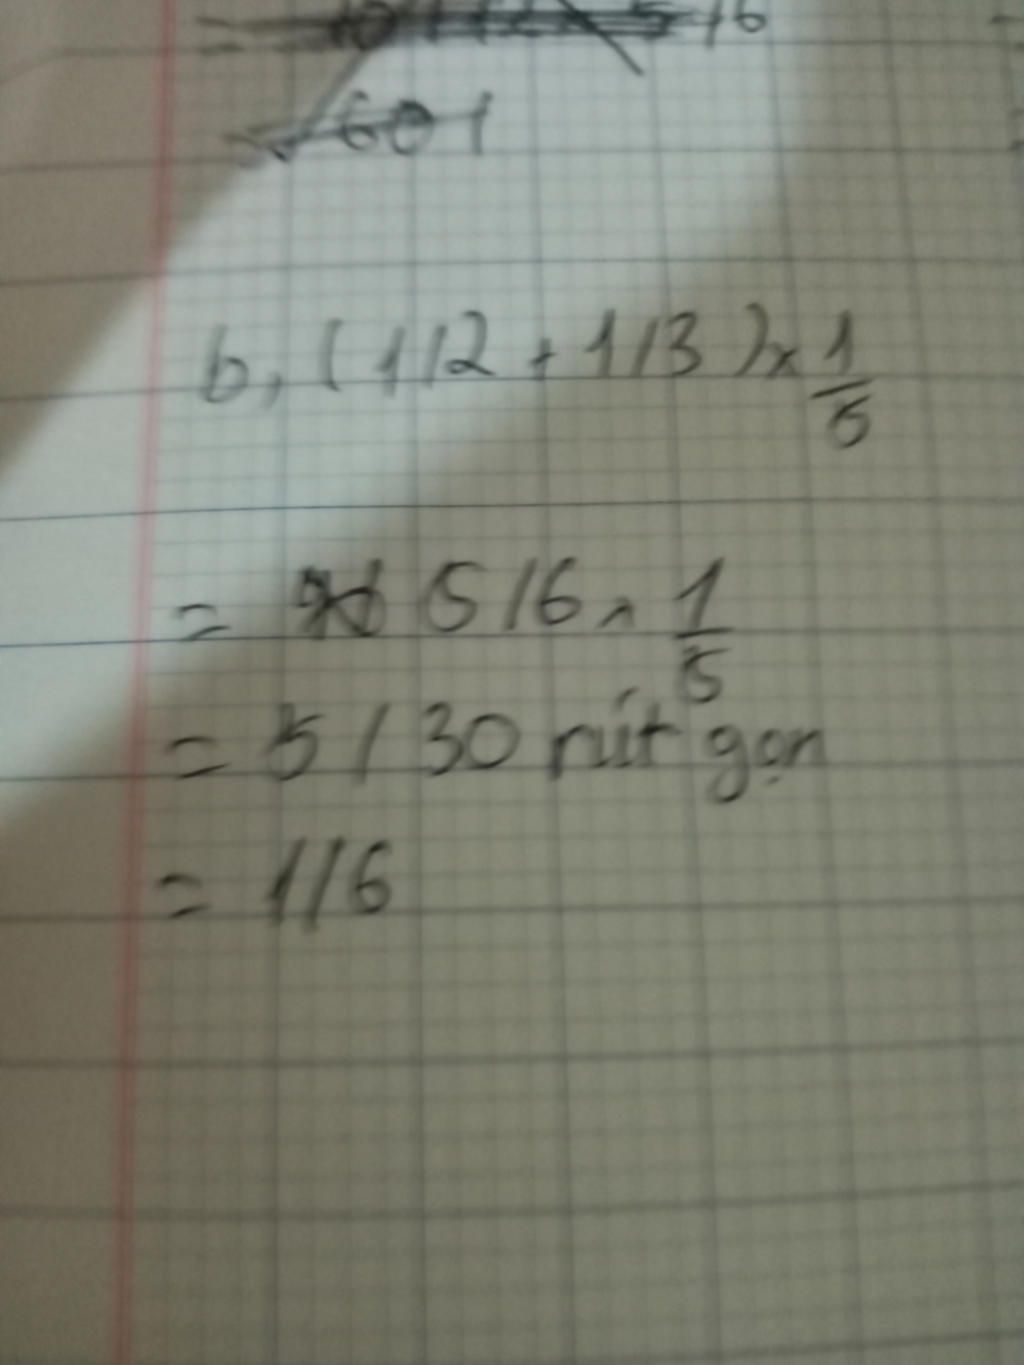 b, (1/2 + 1/3) x 1/5
= 5/6 x 1/5
= 5/30 rút gọn
= 1/6